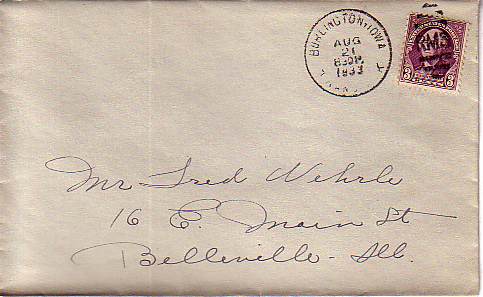 BURLINGTON, IOWA
AUG
21
830 PM
1933
RMS
3 3
Mr Fred Wehrle
16 E. Main St
Belleville - Ill.